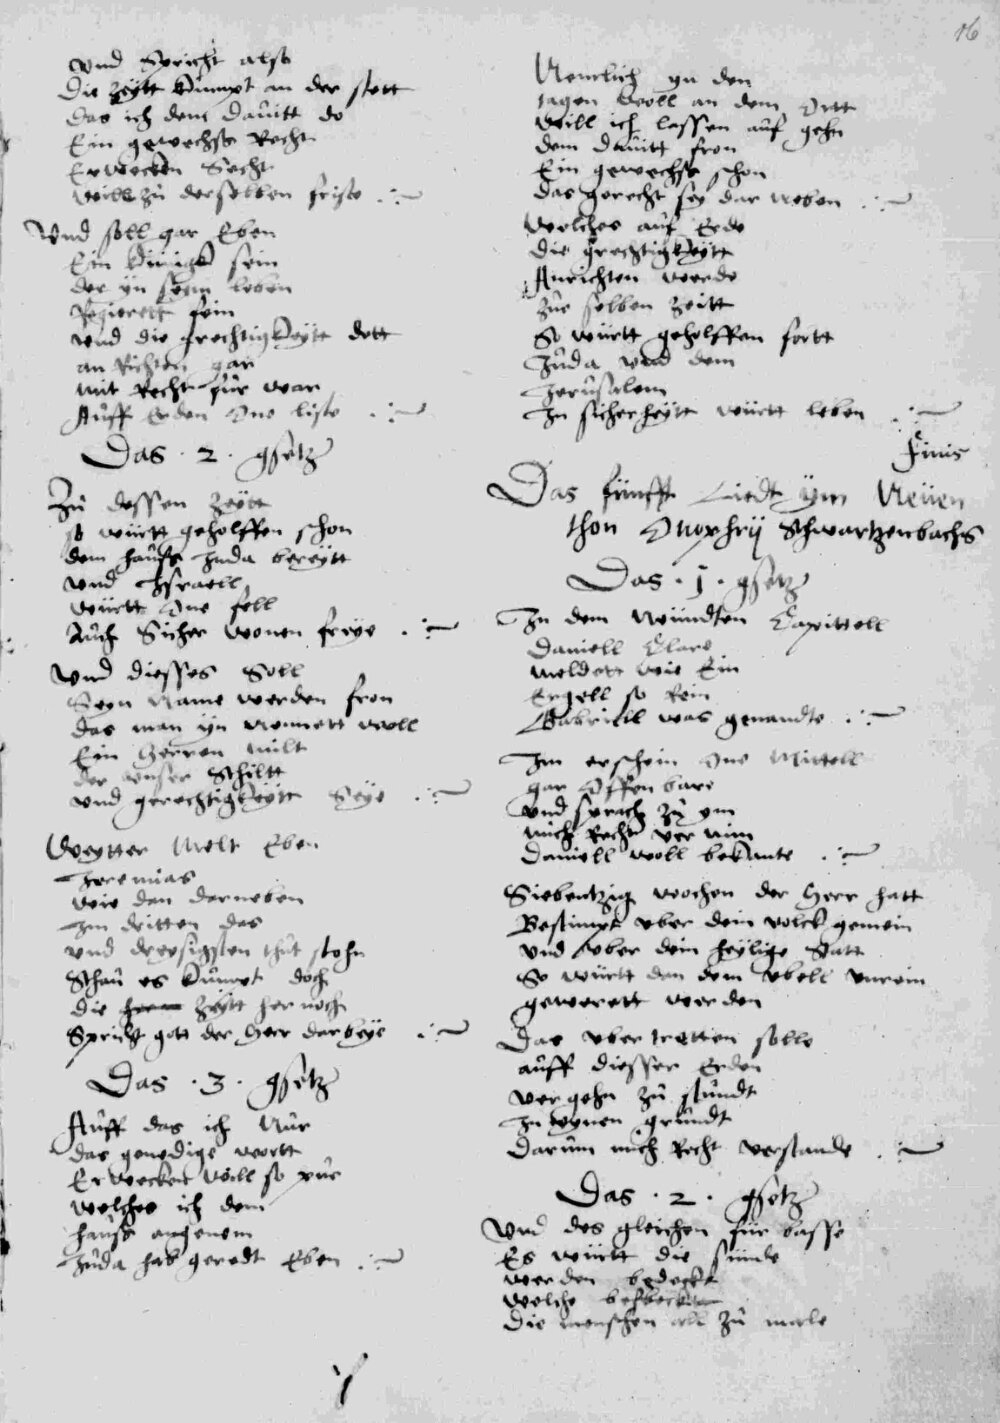 16
vnd Spricht also
Die zeytt kümpt an der stett
das ich dem dauitt do
Ein gewechse Recht
Erwecken Secht
will zu derselben friste
Vnd soll gar Eben
Ein künigk sein
der yn seym leben
Regierett fein
vnd die grechtigkeytt dett
an Richten gar
mit Recht für war
Auff Erden one liste
Das . 2 . gsetz
Zu dessen zeytt
so württ geholffen schon
dem hauss Juda bereytt
vnd Israell
württ one fell
Auch Sicher wonen freye
Vnd diesses Soll
Seyn Name werden fron
das man yn nennett woll
Ein Herren milt
der vnser Schiltt
vnd gerechtigkeytt Seye
Weytter Melt Eben
Jeremias
wie dan darneben
Im dritten das
vnd dreysigsten thut stehn
Schau es kümpt doch
die zeytt her noch
Spricht gott der Herr darbeye
Das . 3 . gsetz
Auff das ich Nur
das genedige wortt
Erwecken will so pur
welches ich dem
hauss angenem
Juda hab geredt Eben
Nemlich yn den
tagen woll an dem Ortt
will ich lassen auff gehn
dem dauitt fron
Ein gewechse schon
das gerecht sey dar neben
welches auff Erde
die grechtigkeytt
Anrichten werde
zur selben zeitt
So württ geholffen fortt
Juda vnd dem
Jerusalem
In sicherheytt württ leben
Finis
Das fünfft Liedt ym Neuen
thon Onophrij Schwartzenbachs
Das . 1 . gsetz
In dem Neundten Capittell
Daniell Clare
meldett wie Ein
Engell so Rein
Gabriell was genandte
Im erschein one Mittell
gar Offenbare
vnd sprach zu ym
mich Recht ver nim
Daniell woll bekante
Siebentzig wochen der Herr hatt
Bestimpt vber dein volck gemein
vnd vber dein heylige Statt
So württ dan dem vbell vnrein
gewerett werden
Das vbertretten solle
auff diesser Erden
vergehn zu stundt
In eynen grundt
darum mich Recht verstande
Das . 2 . gsetz
Vnd des gleichen für basse
Es württ die sünde
werden bedeckt
welche befleckt
die menschen all zu male